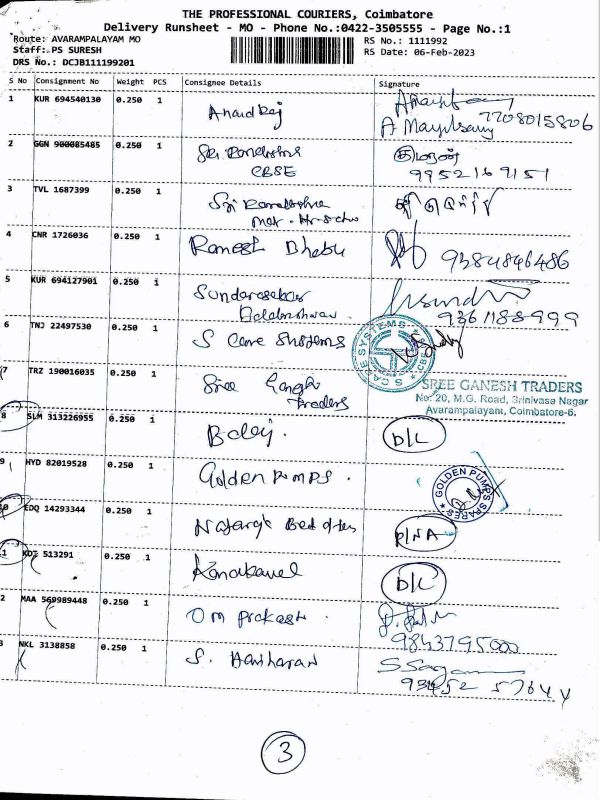 THE PROFESSIONAL COURIERS, Coimbatore
Delivery Runsheet - MO - Phone No.:0422-3505555 - Page No.:1
Route: AVARAMPALAYAM MO
RS No.: 1111992
Staff: PS SURESH
RS Date: 06-Feb-2023
DRS No.: DCJB111199201
S No Consignment No Weight PCS Consignee Details Signature
1 KUR 694540130 0.250 1 Anand Raj
7708015806
2 GGN 900085485 0.250 1 Sri Ramakrishna
CBSE
குமரன்
9952169151
3 TVL 1687399 0.250 1 Sri Ramakrishna
Mat. Hr. Sch
4 CNR 1726036 0.250 1 Ramesh Bhabu
9384846486
5 KUR 694127901 0.250 1 Sundarasekar
9361188999
6 TNJ 22497530 0.250 1 S Care Systems
S CARE SYSTEMS
7 TRZ 190016035 0.250 1 Sree Ganesh
Traders
SREE GANESH TRADERS
No: 20, M.G. Road, Srinivasa Nagar
Avarampalayam, Coimbatore-6.
8 SLM 313226955 0.250 1 Balaji. D/L
9 HYD 82019528 0.250 1 Golden Pumps.
GOLDEN PUMPS SPARES
10 EDQ 14293344 0.250 1 P/NA
1 513291 0.250 1 Kanakavel D/L
2 MAA 569989448 0.250 1 Om Prakash.
9843795000
3 NKL 3138858 0.250 1 S. Hariharan
3